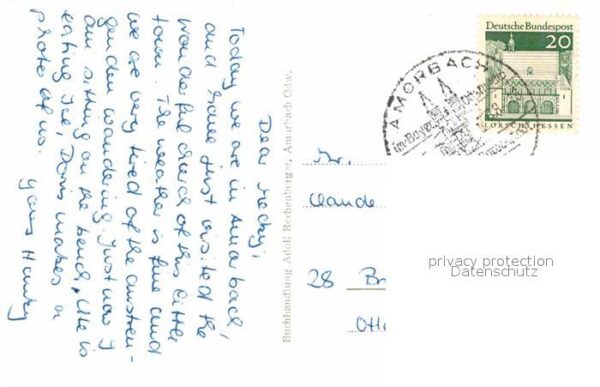 Dear
Today we are in Amorbach,
and have just visited the
wonderful church of this little
town. The weather is fine and
we are very tired of the
wandering. Just now I
am sitting on the bench, Ute is
eating Ice, Doris makes a
photo of us.
yours
Buchhandlung Adolf Rechenberger, Amorbach Odw.
Deutsche Bundespost
20
LORSCH HESSEN
AMORBACH
im Bayerischen Odenwald
Claude
28
privacy protection
Datenschutz